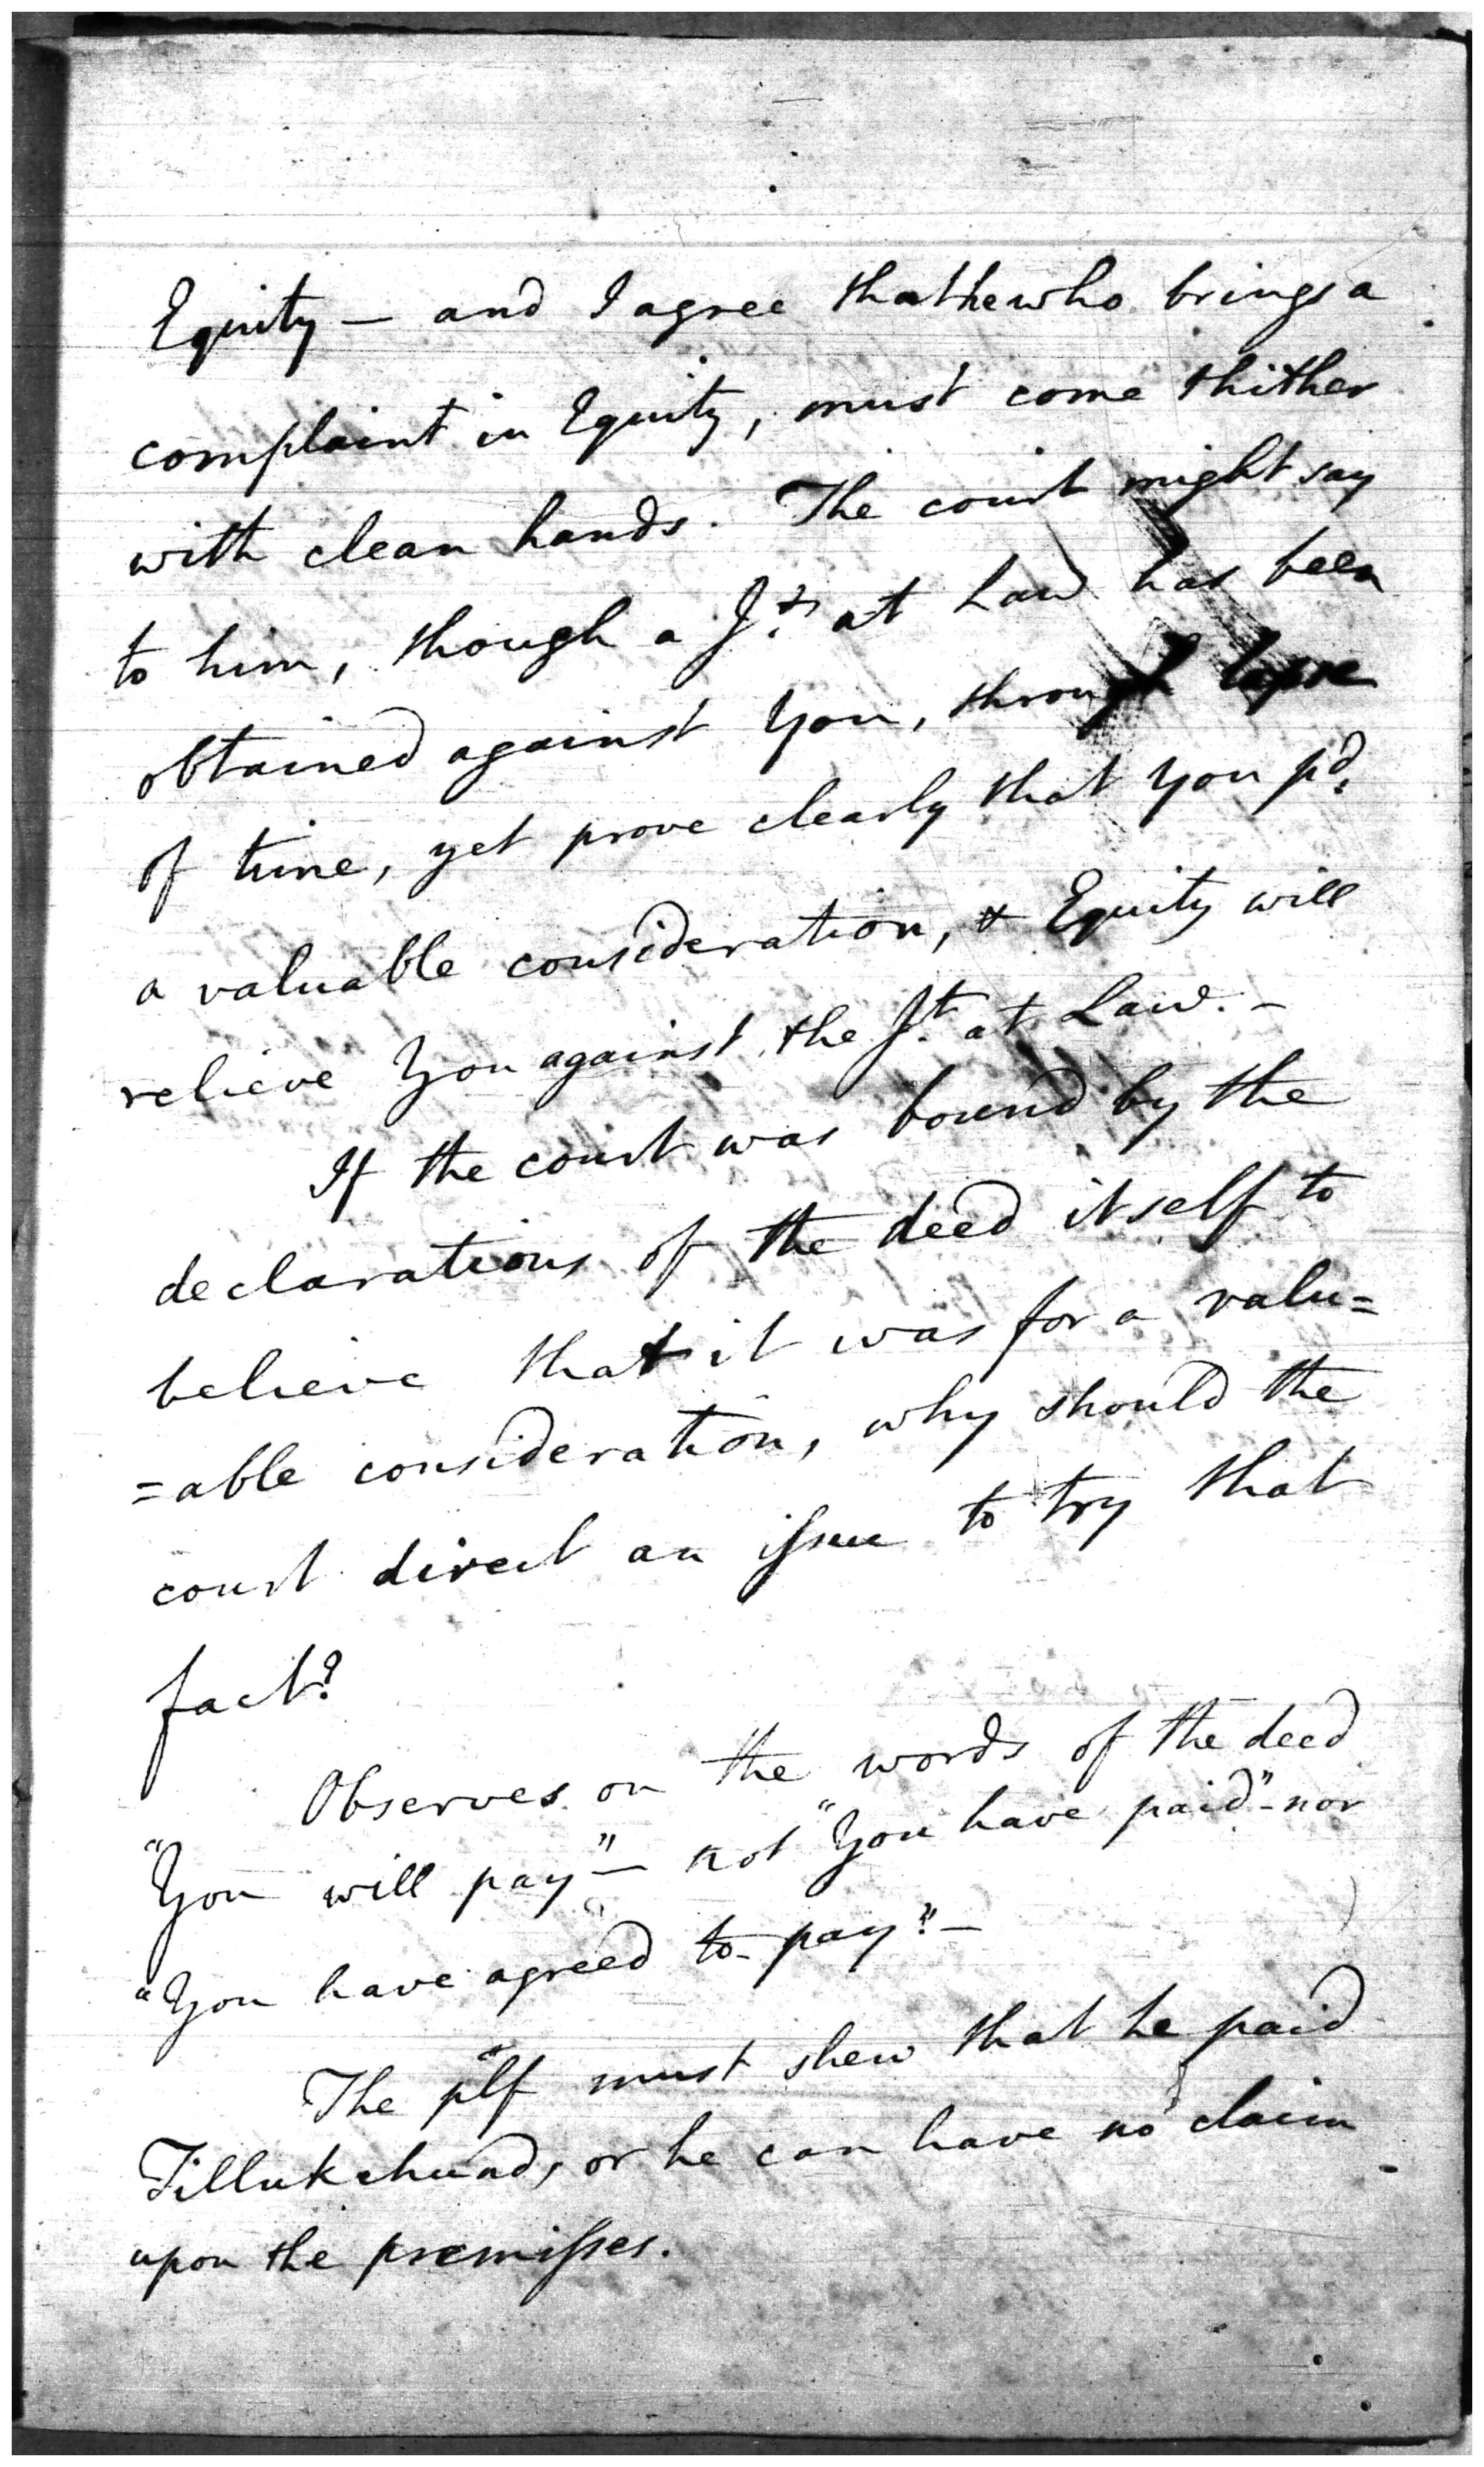 Equity — and I agree that he who brings a
complaint in Equity, must come thither
with clean hands. The court might say
to him, though a Jt. at Law has been
obtained against You, through lapse
of time, yet prove clearly that You pd.
a valuable consideration, & Equity will
relieve You against the Jt. at Law. —
If the court was bound by the
declarations of the deed itself to
believe that it was for a valu=
=able consideration, why should the
court direct an issue to try that
fact?
Observes on the words of the deed
"You will pay" — not "You have paid" - nor
"You have agreed to pay". —
The plf must shew that he paid
Tillukchund, or he can have no claim
upon the premisses.